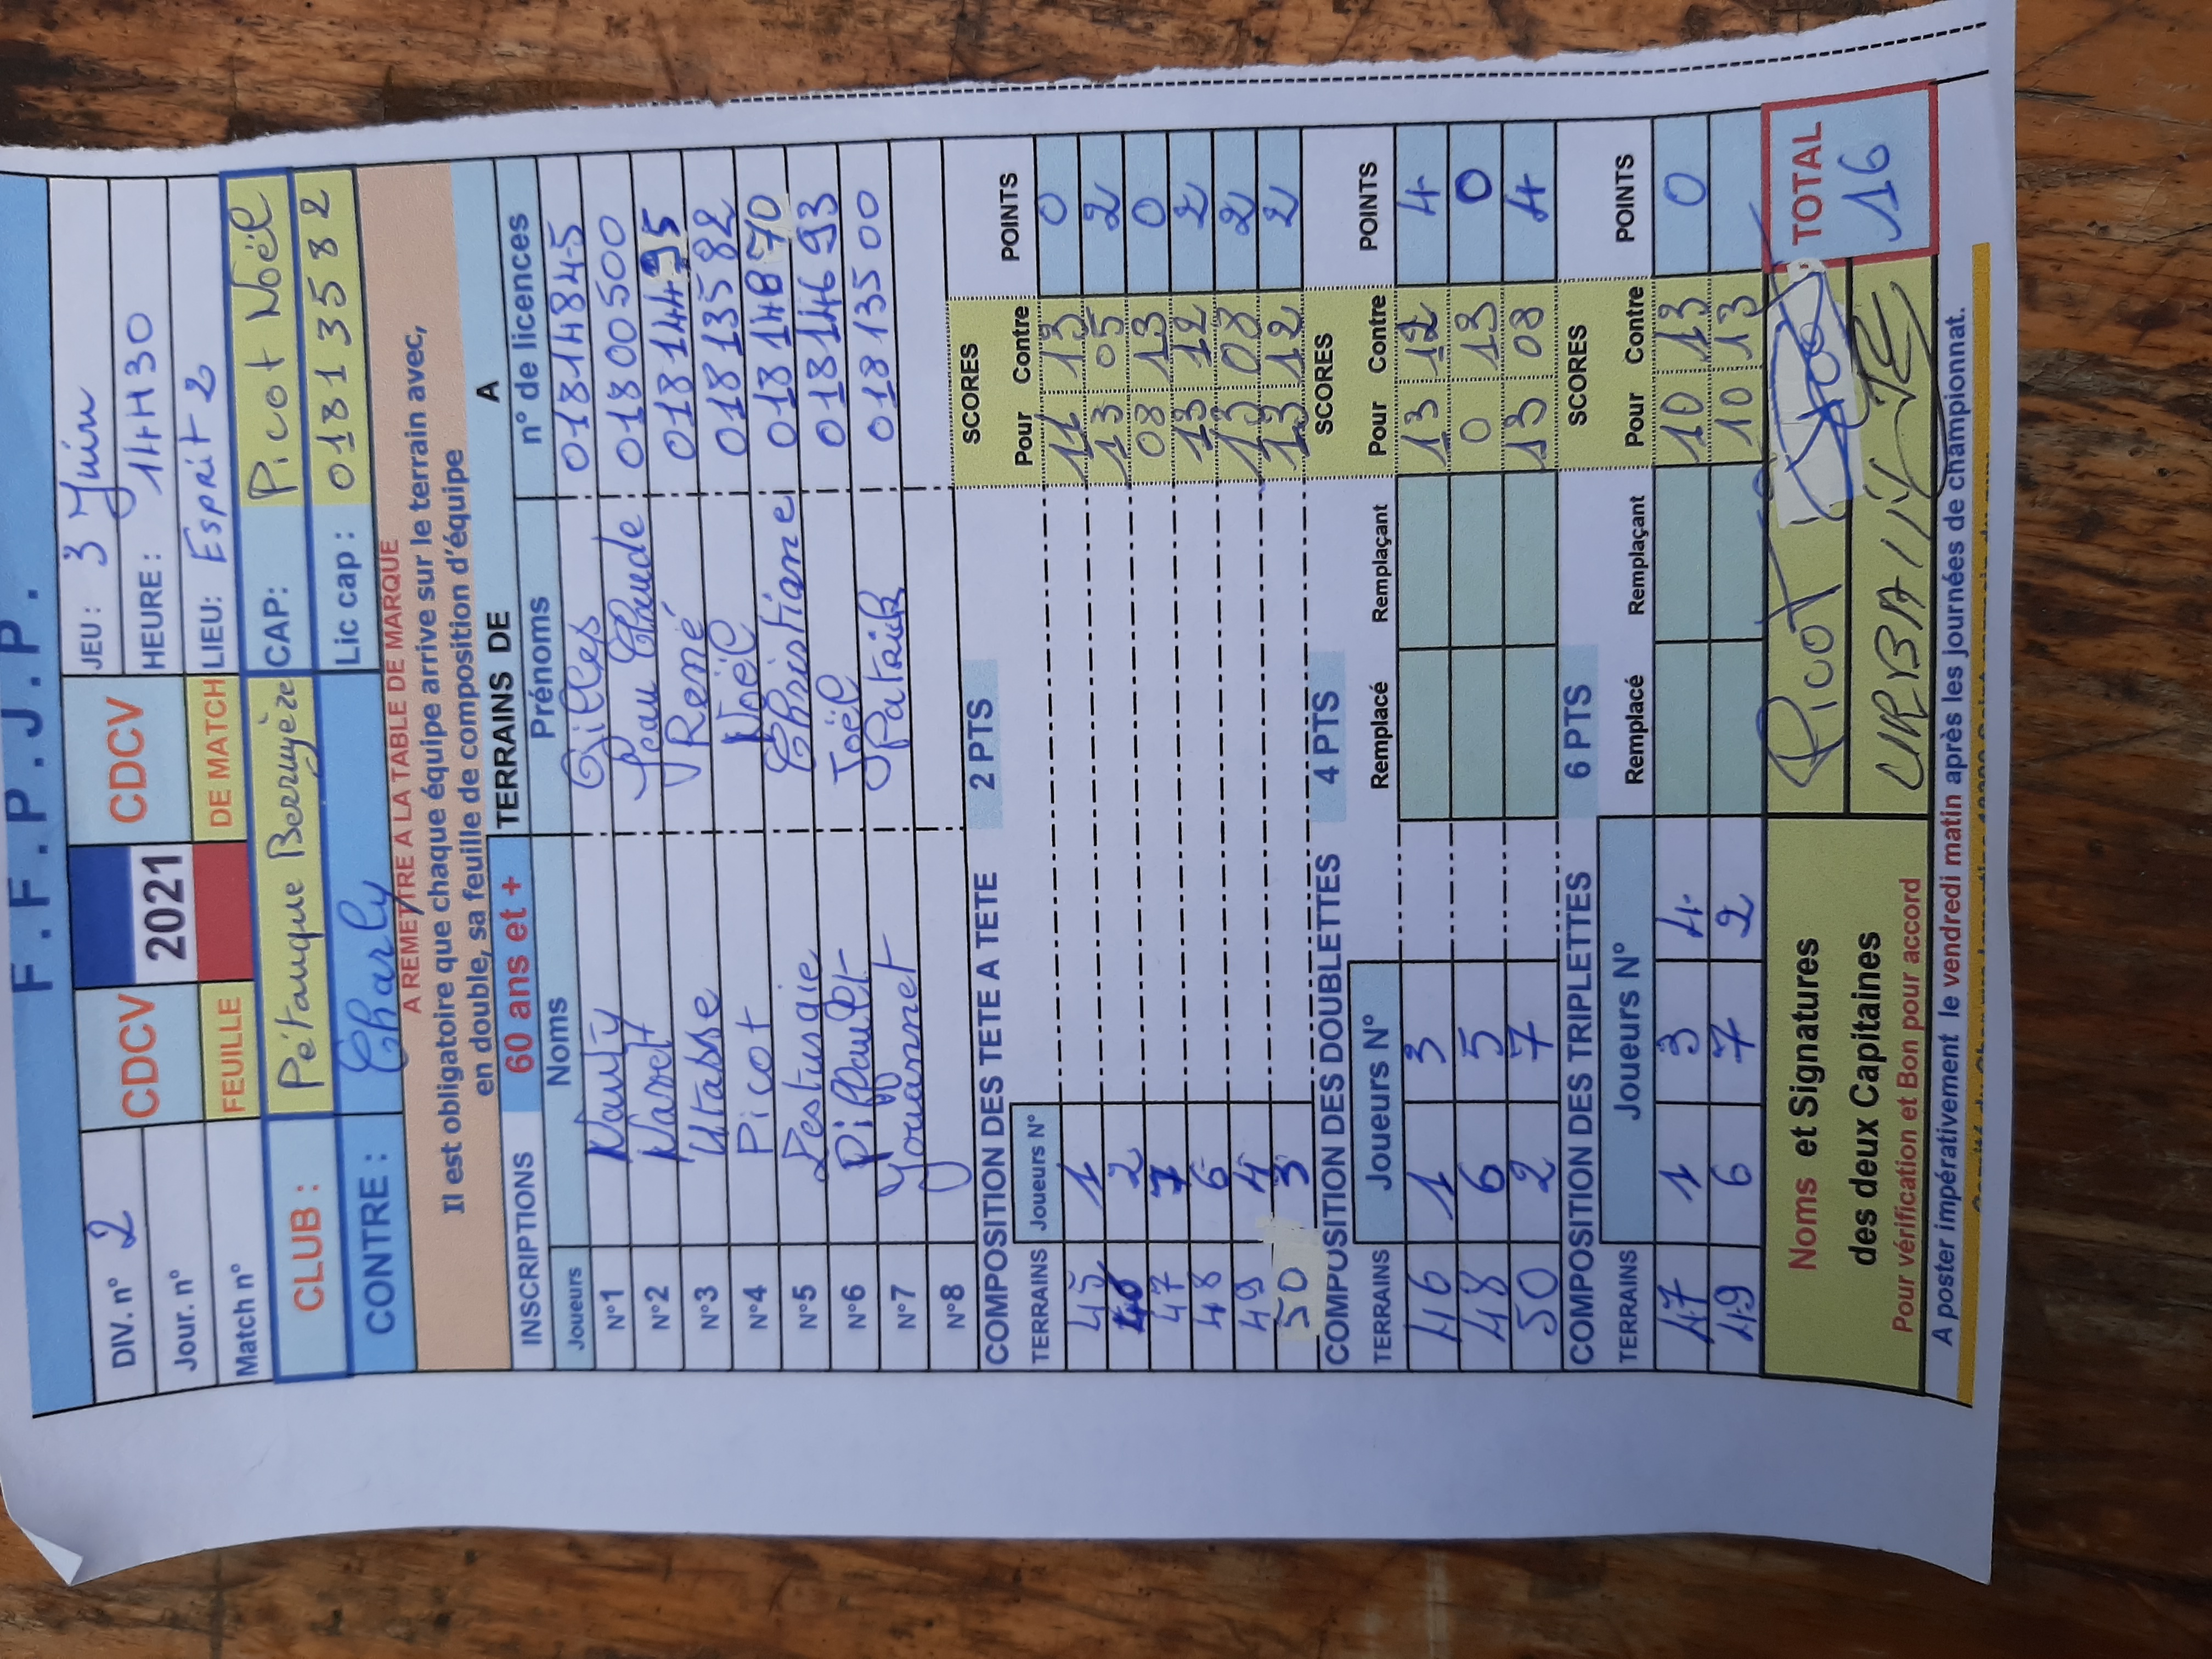 F.F.P.J.P.
DIV. n° 2 CDCV 2021 CDCV JEU : 3 Juin
Jour. n° HEURE : 14H30
Match n° FEUILLE DE MATCH LIEU: Esprit 2
CLUB : Pétanque Berruyère CAP: Picot Noël
CONTRE : Charly Lic cap : 01813582
A REMETTRE A LA TABLE DE MARQUE
Il est obligatoire que chaque équipe arrive sur le terrain avec,
en double, sa feuille de composition d'équipe
INSCRIPTIONS 60 ans et + TERRAINS DE A
Joueurs Noms Prénoms n° de licences
N°1 Nauty Gilles 01814845
N°2 Navet Jean Claude 01800500
N°3 Utasse René 01814495
N°4 Picot Noël 01813582
N°5 Lesturgie Christiane 01814870
N°6 Piffault Joël 01814693
N°7 Jouannet Patrick 01813500
N°8
COMPOSITION DES TETE A TETE 2 PTS SCORES
TERRAINS Joueurs N° Pour Contre POINTS
45 1 11 13 0
46 2 13 05 2
47 7 08 13 0
48 6 13 12 2
49 4 13 08 2
50 3 13 12 2
COMPOSITION DES DOUBLETTES 4 PTS SCORES
TERRAINS Joueurs N° Remplacé Remplaçant Pour Contre POINTS
46 1 3 13 12 4
48 6 5 0 13 0
50 2 7 13 08 4
COMPOSITION DES TRIPLETTES 6 PTS SCORES
TERRAINS Joueurs N° Remplacé Remplaçant Pour Contre POINTS
47 1 3 4 10 13 0
49 6 7 2 10 13
Noms et Signatures PICOT TOTAL
des deux Capitaines URBAIN 16
Pour vérification et Bon pour accord
A poster impérativement le vendredi matin après les journées de championnat.